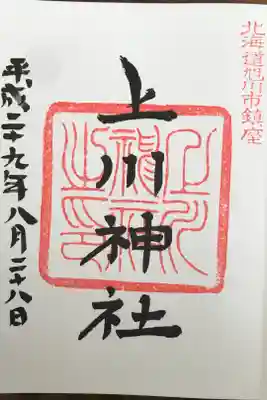 北海道旭川市鎮座
上川神社
平成二十九年八月二十八日